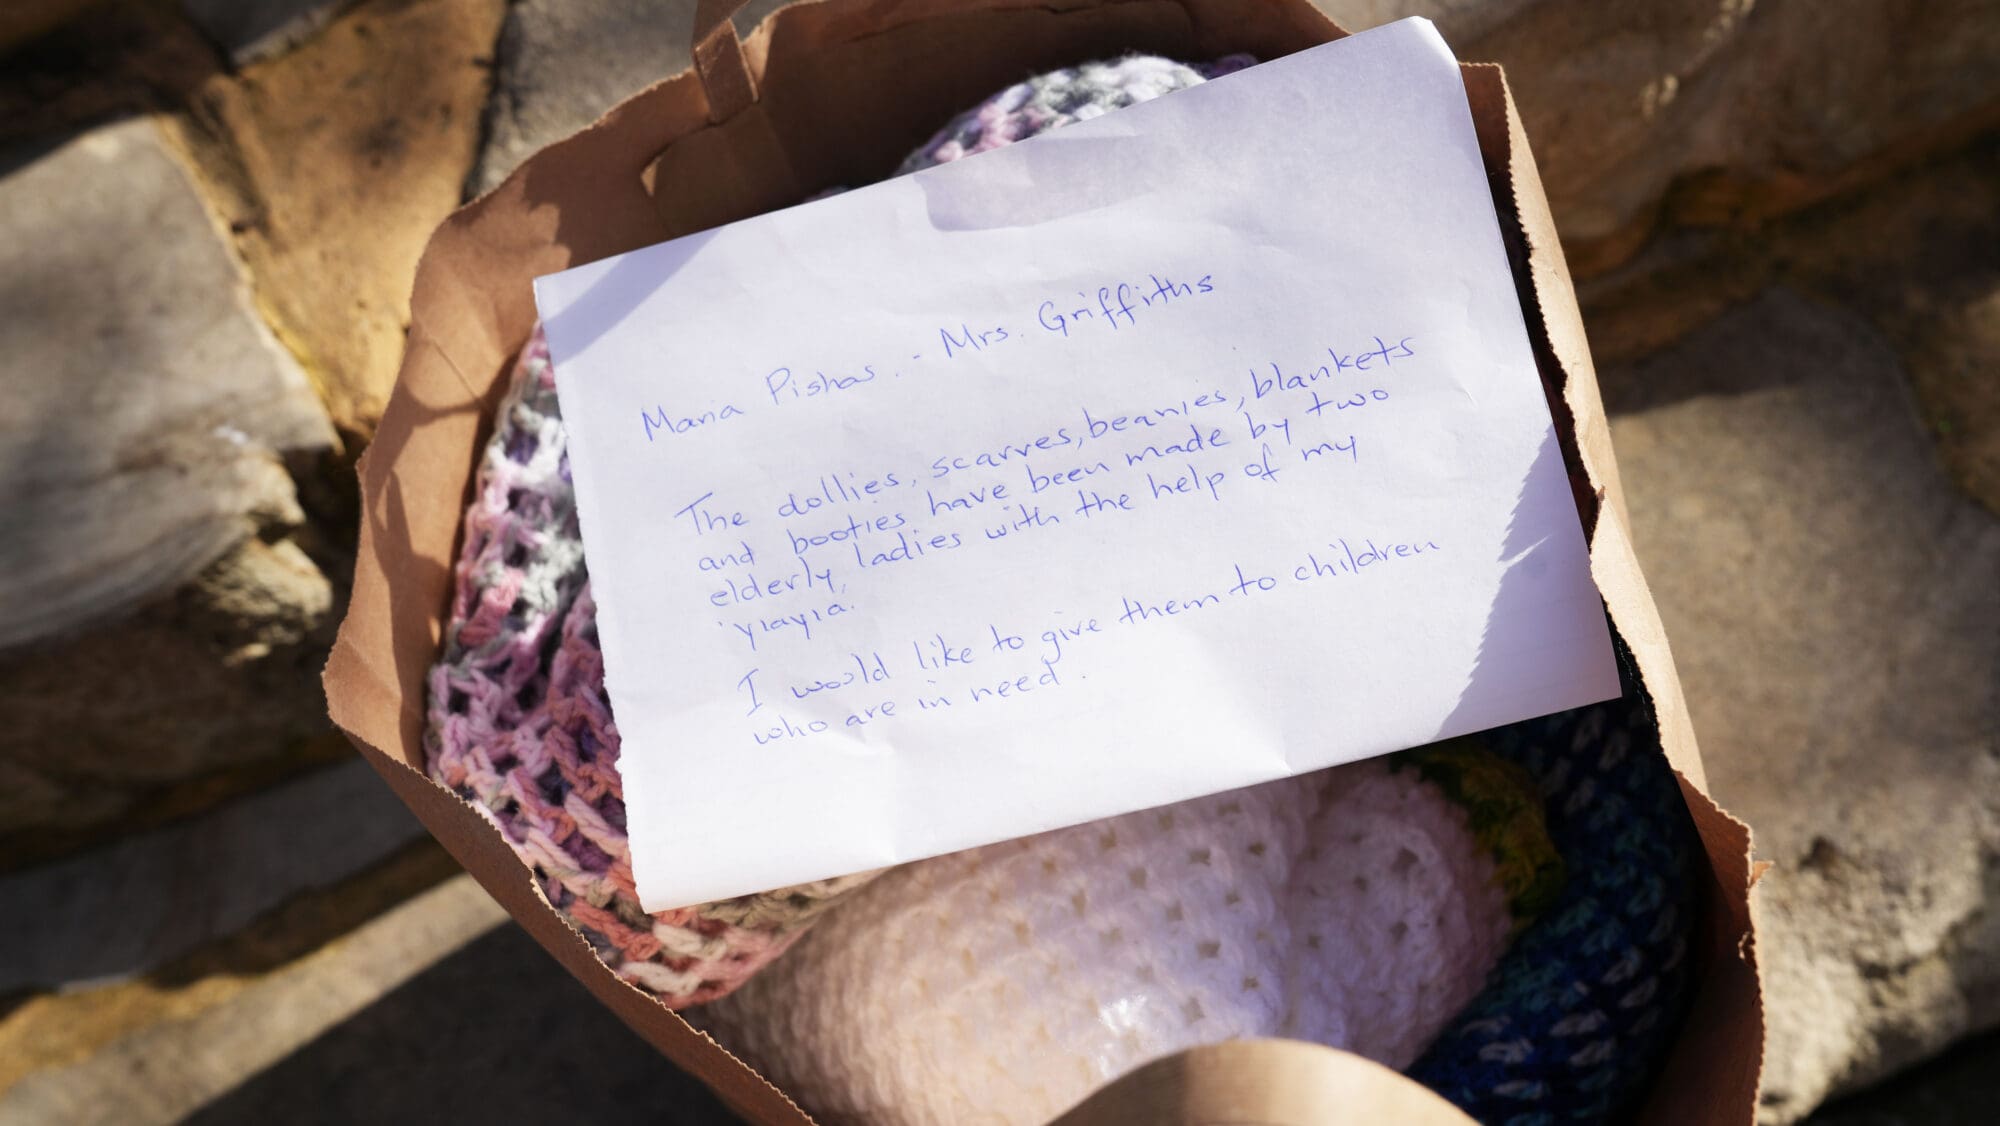 Maria Pishas. - Mrs. Griffiths
The dollies, scarves, beanies, blankets
and booties have been made by two
elderly, ladies with the help of my
'yiayia.
I would like to give them to children
who are in need.